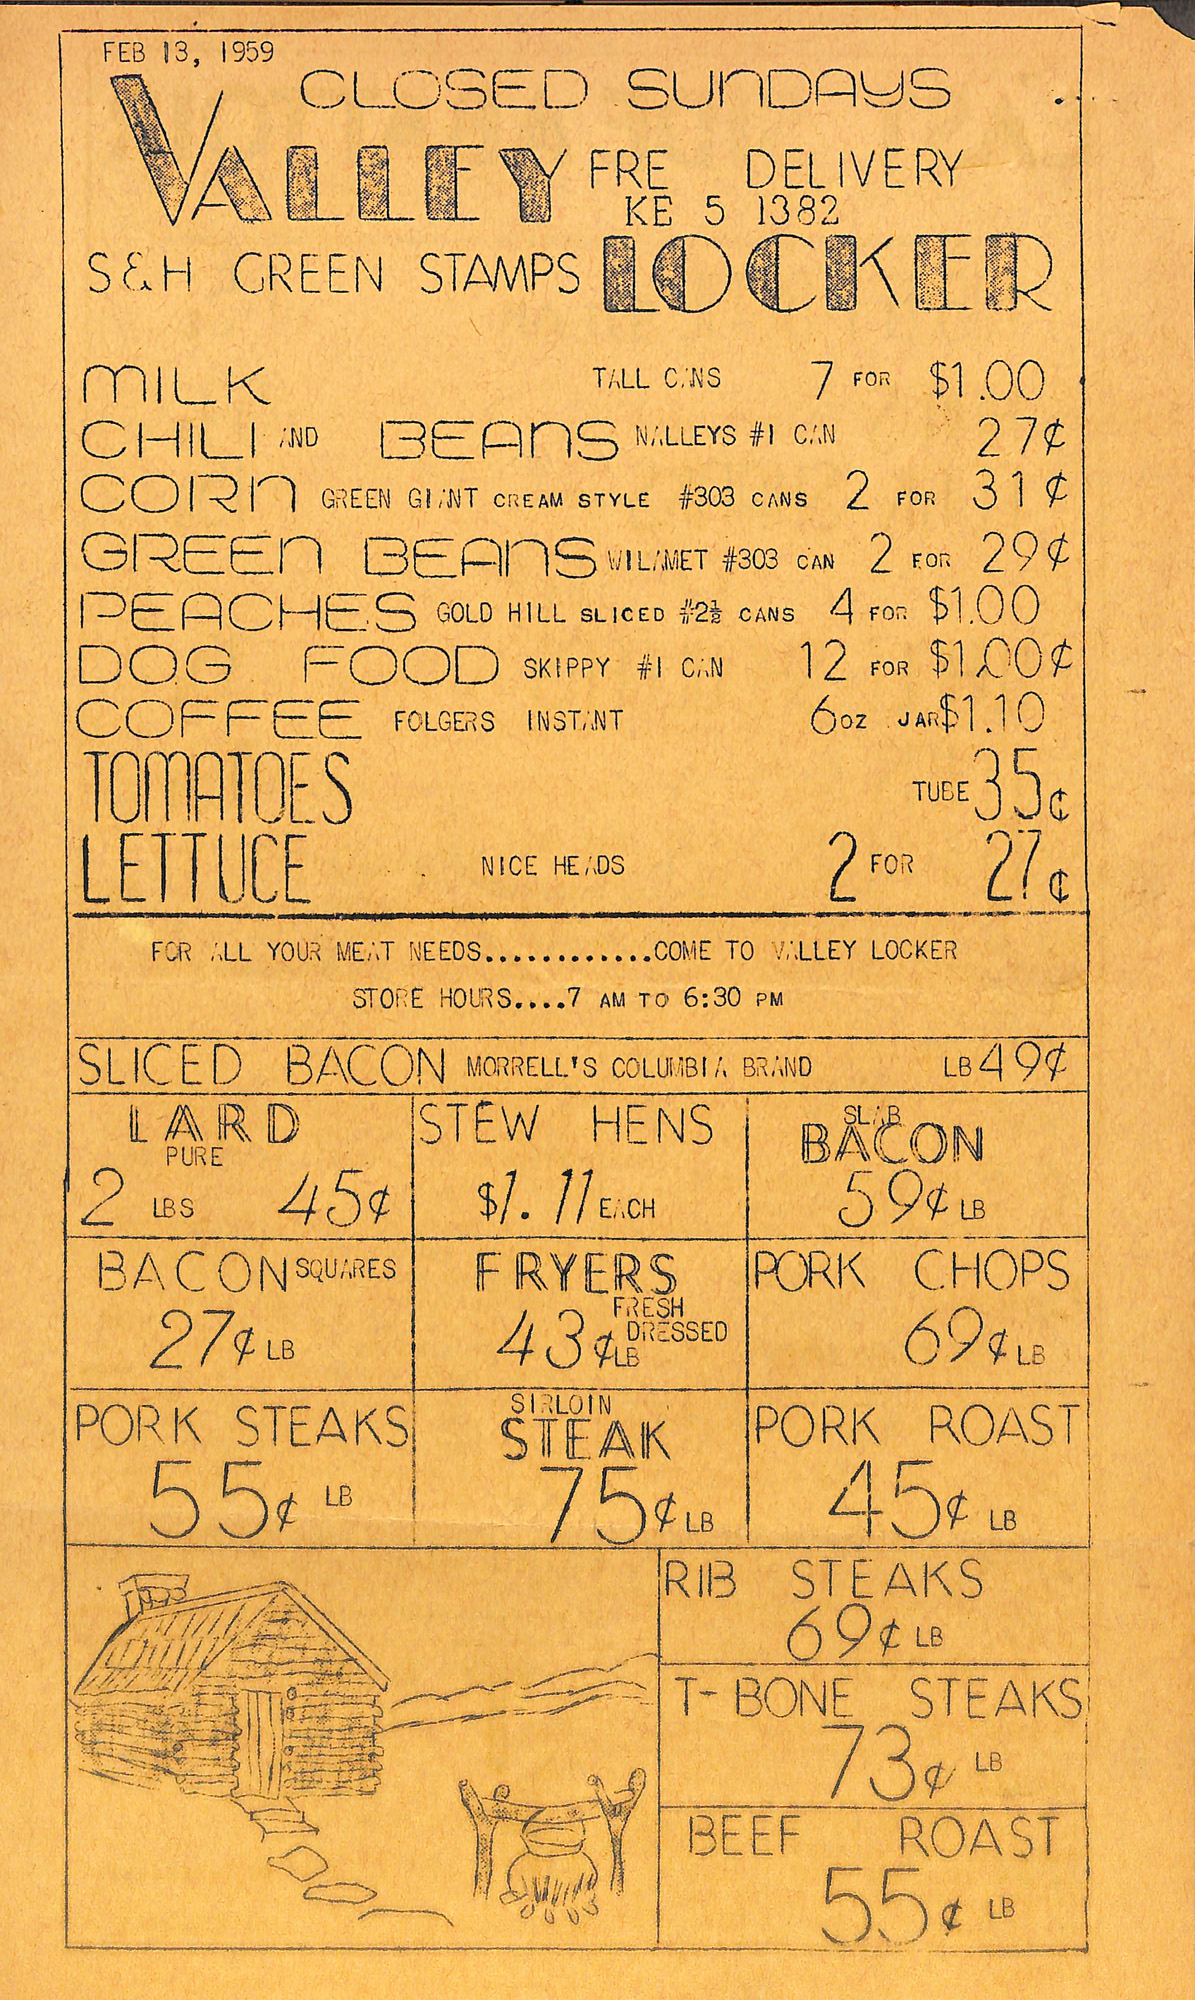 FEB 13, 1959
CLOSED SUNDAYS
VALLEY FRE DELIVERY
KE 5 1382
S&H GREEN STAMPS LOCKER
MILK TALL CANS 7 FOR $1.00
CHILI AND BEANS NALLEYS #1 CAN 27¢
CORN GREEN GIANT CREAM STYLE #303 CANS 2 FOR 31¢
GREEN BEANS WILAMET #303 CAN 2 FOR 29¢
PEACHES GOLD HILL SLICED #2½ CANS 4 FOR $1.00
DOG FOOD SKIPPY #1 CAN 12 FOR $1.00¢
COFFEE FOLGERS INSTANT 6OZ JAR $1.10
TOMATOES TUBE 35¢
LETTUCE NICE HEADS 2 FOR 27¢
FOR ALL YOUR MEAT NEEDS............COME TO VALLEY LOCKER
STORE HOURS....7 AM TO 6:30 PM
SLICED BACON MORRELL'S COLUMBIA BRAND LB 49¢
LARD
PURE
2 LBS 45¢
STEW HENS
$1.11 EACH
SLAB
BACON
59¢ LB
BACON SQUARES
27¢ LB
FRYERS
FRESH
DRESSED
43¢ LB
PORK CHOPS
69¢ LB
PORK STEAKS
55¢ LB
SIRLOIN
STEAK
75¢ LB
PORK ROAST
45¢ LB
RIB STEAKS
69¢ LB
T-BONE STEAKS
73¢ LB
BEEF ROAST
55¢ LB